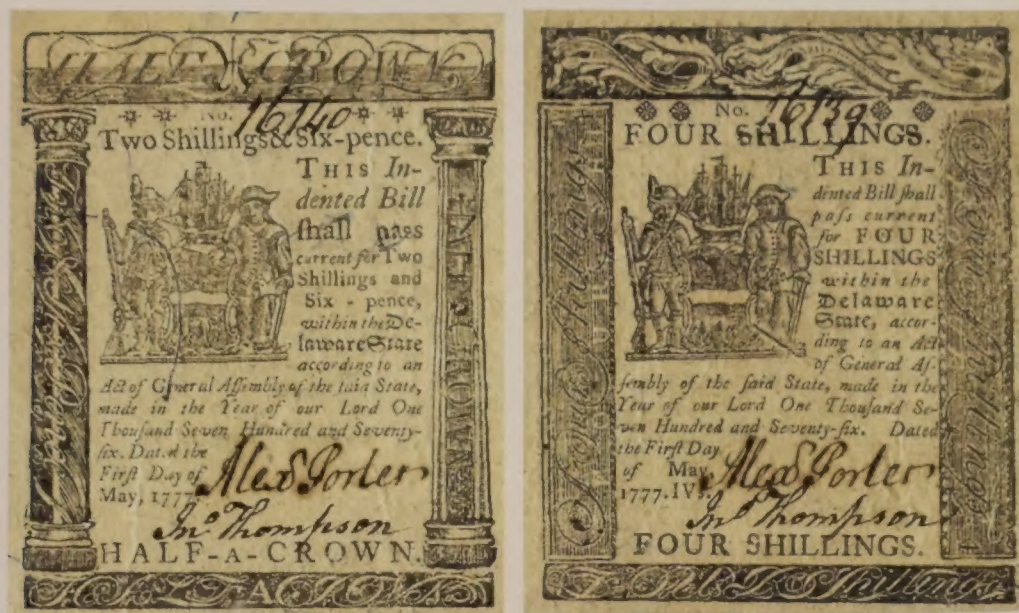 HALF A CROWN
No. 16140
Two Shillings & Six-pence.
THIS In-
dented Bill
ſhall paſs
current for Two
Shillings and
Six-pence,
within the De-
laware State
according to an
Act of General Aſſembly of the ſaid State,
made in the Year of our Lord One
Thouſand Seven Hundred and Seventy-
ſix. Dated the
First Day of
May, 1777.
Alexd Porter
Jno Thompson
HALF-A-CROWN.
HALF A CROWN
HALF A CROWN
No. 16139
FOUR SHILLINGS.
THIS In-
dented Bill ſhall
paſs current
for FOUR
SHILLINGS
within the
Delaware
State, accor-
ding to an Act
of General Aſ-
ſembly of the ſaid State, made in the
Year of our Lord One Thouſand Se-
ven Hundred and Seventy-ſix. Dated
the Firſt Day
of May,
1777. IVs.
Alexd Porter
Jno Thompson
FOUR SHILLINGS.
Four Shillings
Four Shillings
Shillings